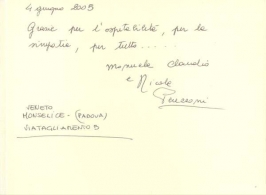 4 giugno 2009
Grazie per l'ospitalità, per la
simpatia, per tutto.....
Manuela Claudio
e Nicola
VENETO
MONSELICE - (PADOVA)
VIA TAGLIAMENTO 5